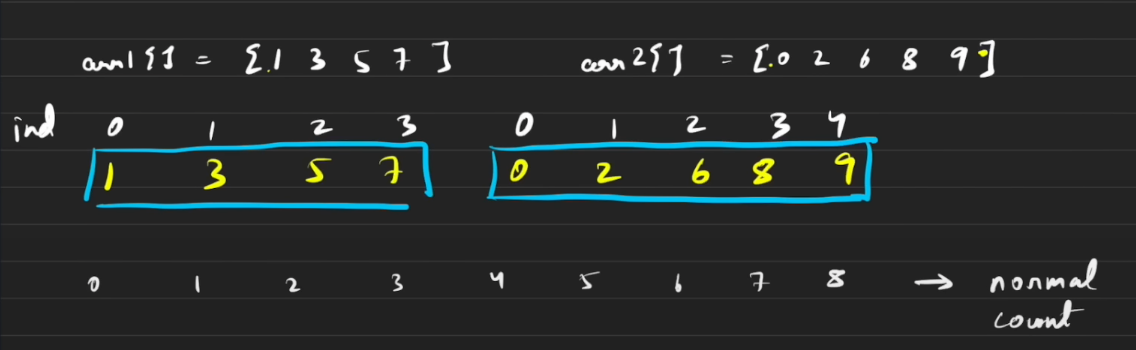 arr1[] = [1 3 5 7] arr2[] = [0 2 6 8 9]
ind 0 1 2 3 0 1 2 3 4
1 3 5 7 0 2 6 8 9
0 1 2 3 4 5 6 7 8 → normal
count